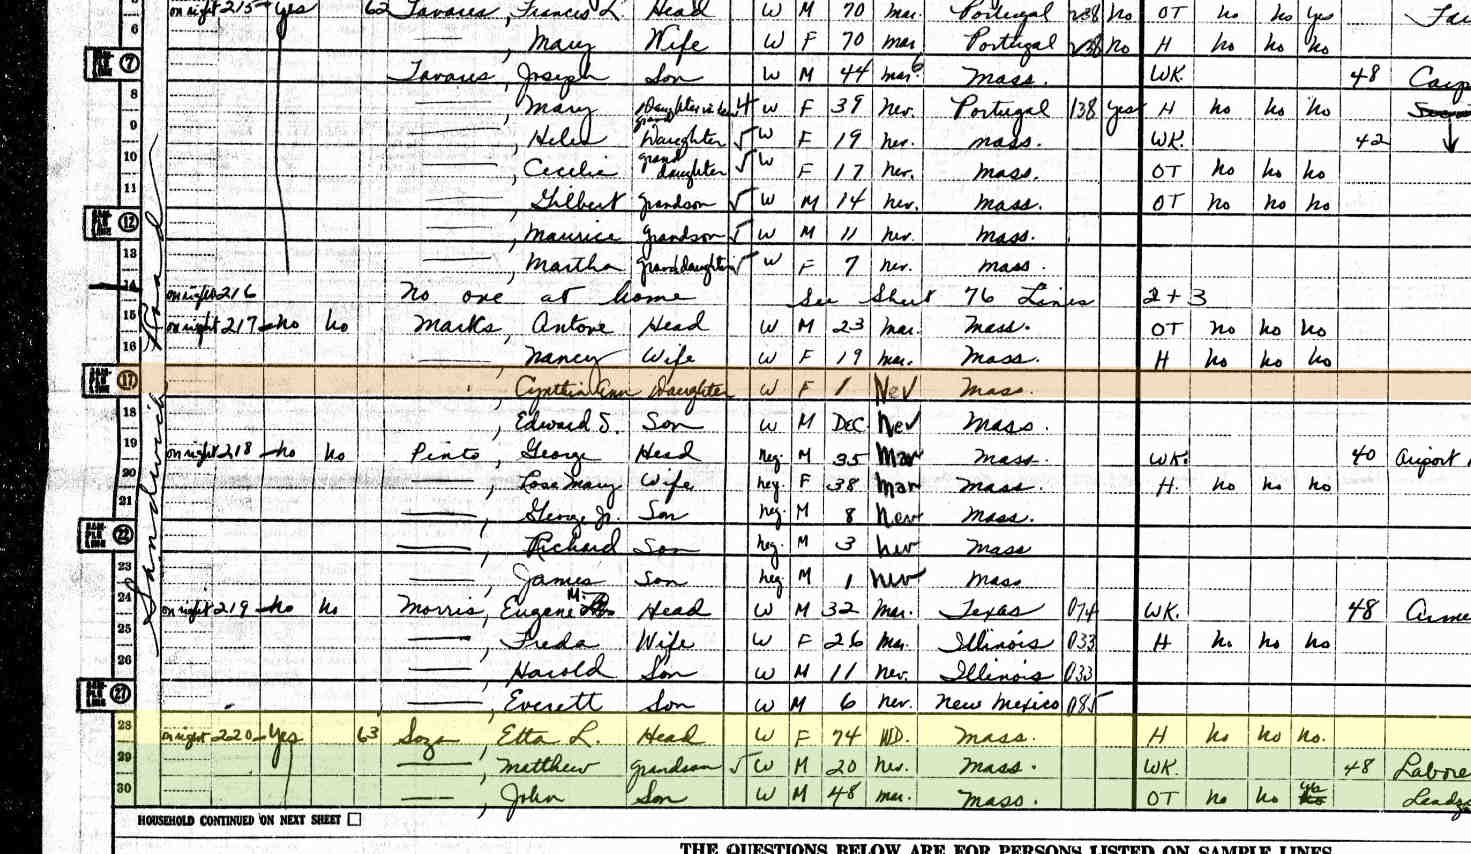 on right 215 Yes 62 Tavares, Francis L. Head W M 70 mar. Portugal 238 no OT no no yes
6 , Mary Wife W F 70 mar. Portugal 238 no H no no no
SAMPLE LINE 7 Tavares, Joseph Son W M 44 mar. 6 Mass. WK. 48
8 , Mary Daughter in law 4 W F 39 nev. Portugal 138 yes H no no no
9 , Helen grand Daughter √ W F 19 nev. Mass. WK. 42
10 , Cecilia grand daughter √ W F 17 nev. Mass. OT no no no
11 , Gilbert grandson √ W M 14 nev. Mass. OT no no no
SAMPLE LINE 12 , Maurice grandson √ W M 11 nev. Mass.
13 , Martha granddaughter √ W F 7 nev. Mass.
14 on right 216 No one at home See Sheet 76 Lines 2 + 3
15 on right 217 no no Marks, Antone Head W M 23 mar. Mass. OT no no no
16 , Nancy Wife W F 19 mar. Mass. H no no no
SAMPLE LINE 17 , Cynthia Ann Daughter W F 1 Nev Mass.
18 , Edward S. Son W M DEC Nev Mass.
19 on right 218 no no Pinto, George Head neg. M 35 Mar Mass. WK. 40 Airport
20 , Rose Mary Wife neg. F 38 mar Mass. H. no no no
21 , George Jr. Son neg M 8 Nev Mass.
SAMPLE LINE 22 , Richard Son neg. M 3 nev Mass
23 , James Son neg. M 1 nev Mass
24 on right 219 no no Morris, Eugene M. Head W M 32 mar. Texas 074 WK. 48
25 , Freda Wife W F 26 mar. Illinois 033 H no no no
26 , Harold Son W M 11 nev. Illinois 033
SAMPLE LINE 27 , Everett Son W M 6 nev. New Mexico 085
28 on right 220 Yes 63 Soza, Etta L. Head W F 74 WD. Mass. H no no no.
29 , Matthew grandson √ W M 20 nev. Mass. WK. 48 Labore
30 , John Son W M 48 mar. Mass. OT no no yes
Sandwich Road
HOUSEHOLD CONTINUED ON NEXT SHEET
THE QUESTIONS BELOW ARE FOR PERSONS LISTED ON SAMPLE LINES